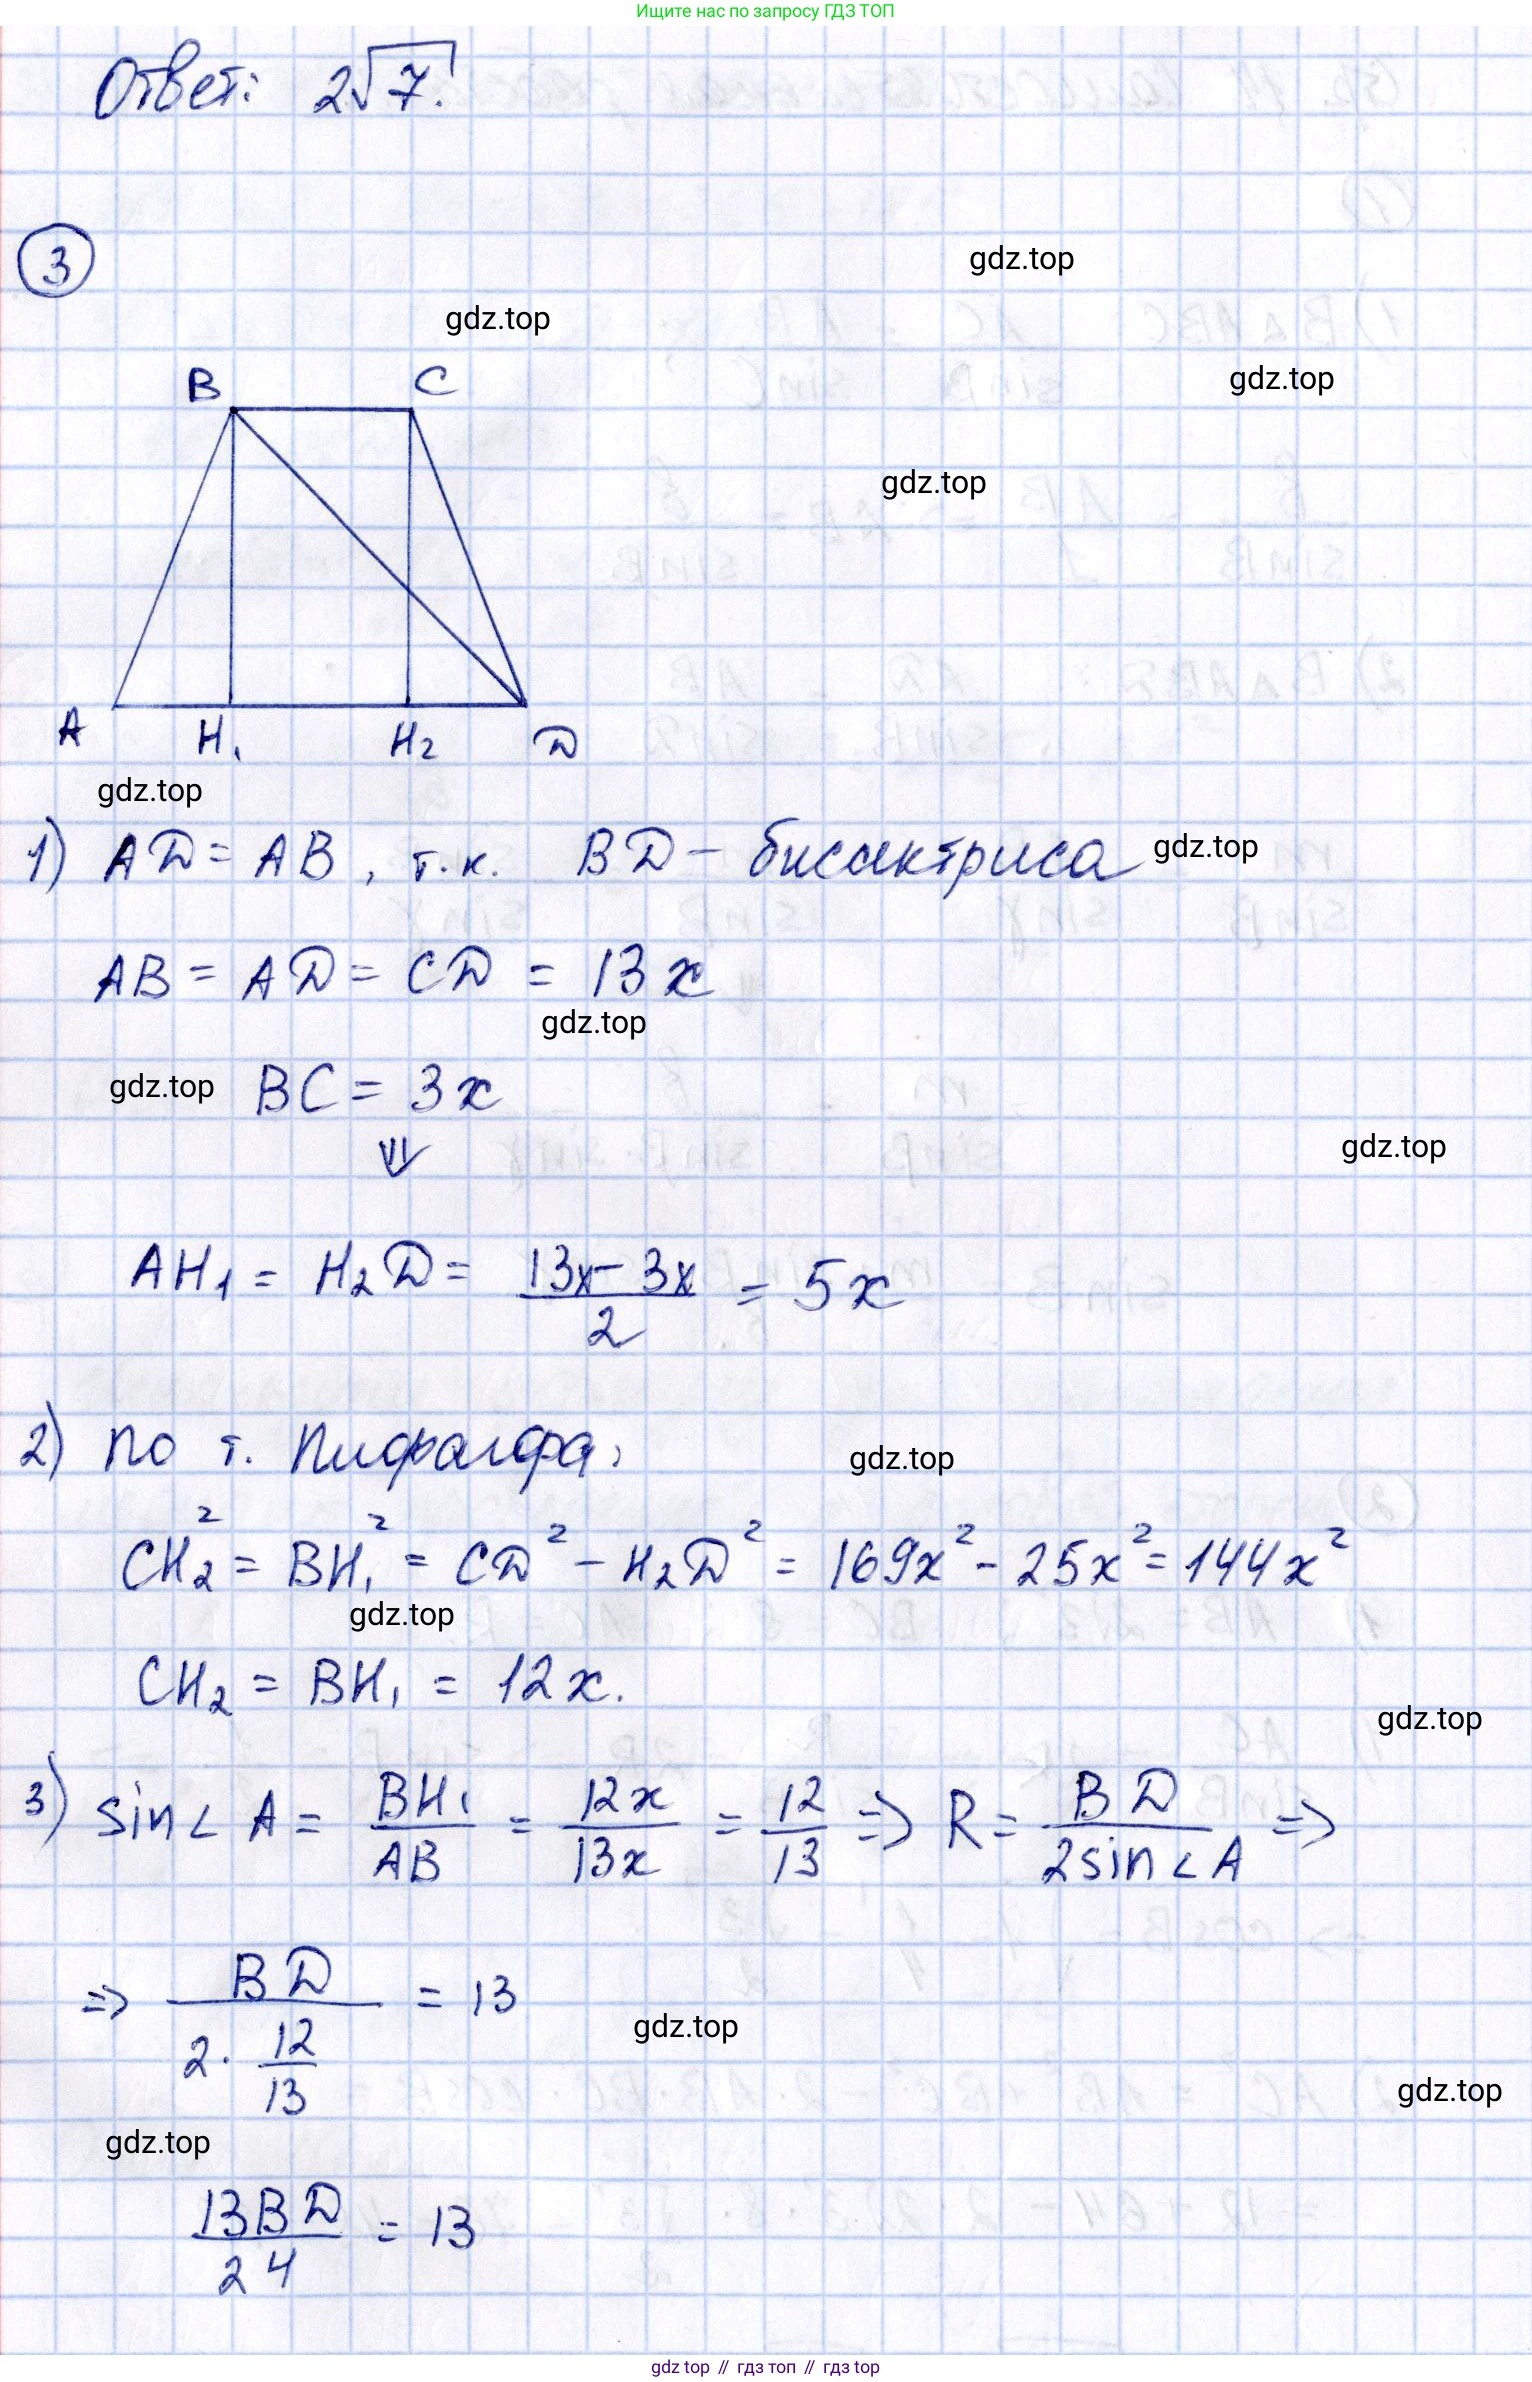 Ищите нас по запросу ГДЗ ТОП
Ответ: 2√7.
3
gdz.top
gdz.top
B C
gdz.top
gdz.top
A H₁ H₂ D
gdz.top
1) AD = AB, т.к. BD – биссектриса
gdz.top
AB = AD = CD = 13x
gdz.top
gdz.top
BC = 3x
⇓
gdz.top
AH₁ = H₂D = (13x – 3x)/2 = 5x
2) По т. Пифагора,
gdz.top
CH₂² = BH₁² = CD² – H₂D² = 169x² – 25x² = 144x²
gdz.top
CH₂ = BH₁ = 12x.
gdz.top
3) sin∠A = BH₁/AB = 12x/13x = 12/13 ⇒ R = BD/2sin∠A ⇒
⇒ BD/(2 · 12/13) = 13
gdz.top
gdz.top
gdz.top
13BD/24 = 13
gdz top // гдз топ // гдз top